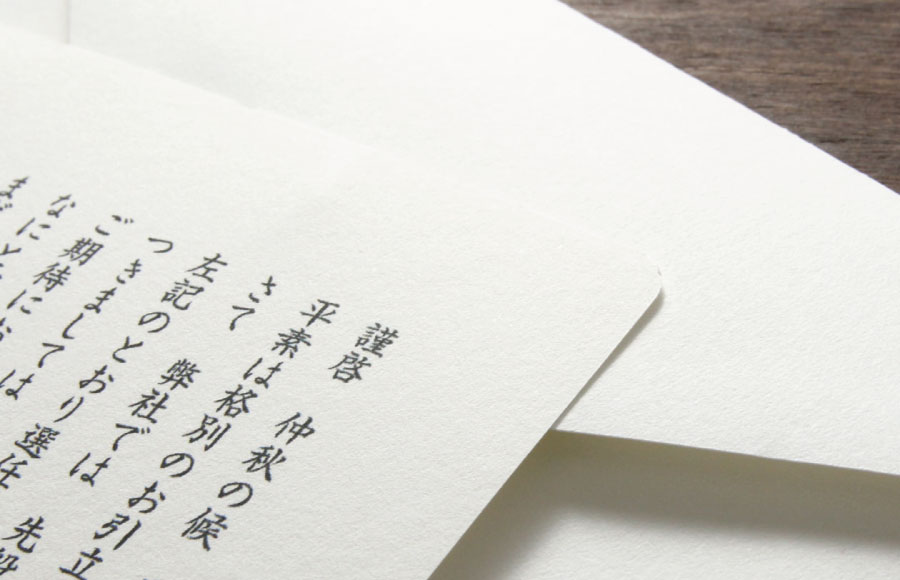 謹啓 仲秋の候
平素は格別のお引立
さて 弊社では 先般
左記のとおり 選任
つきましては
ご期待に
なに
ま